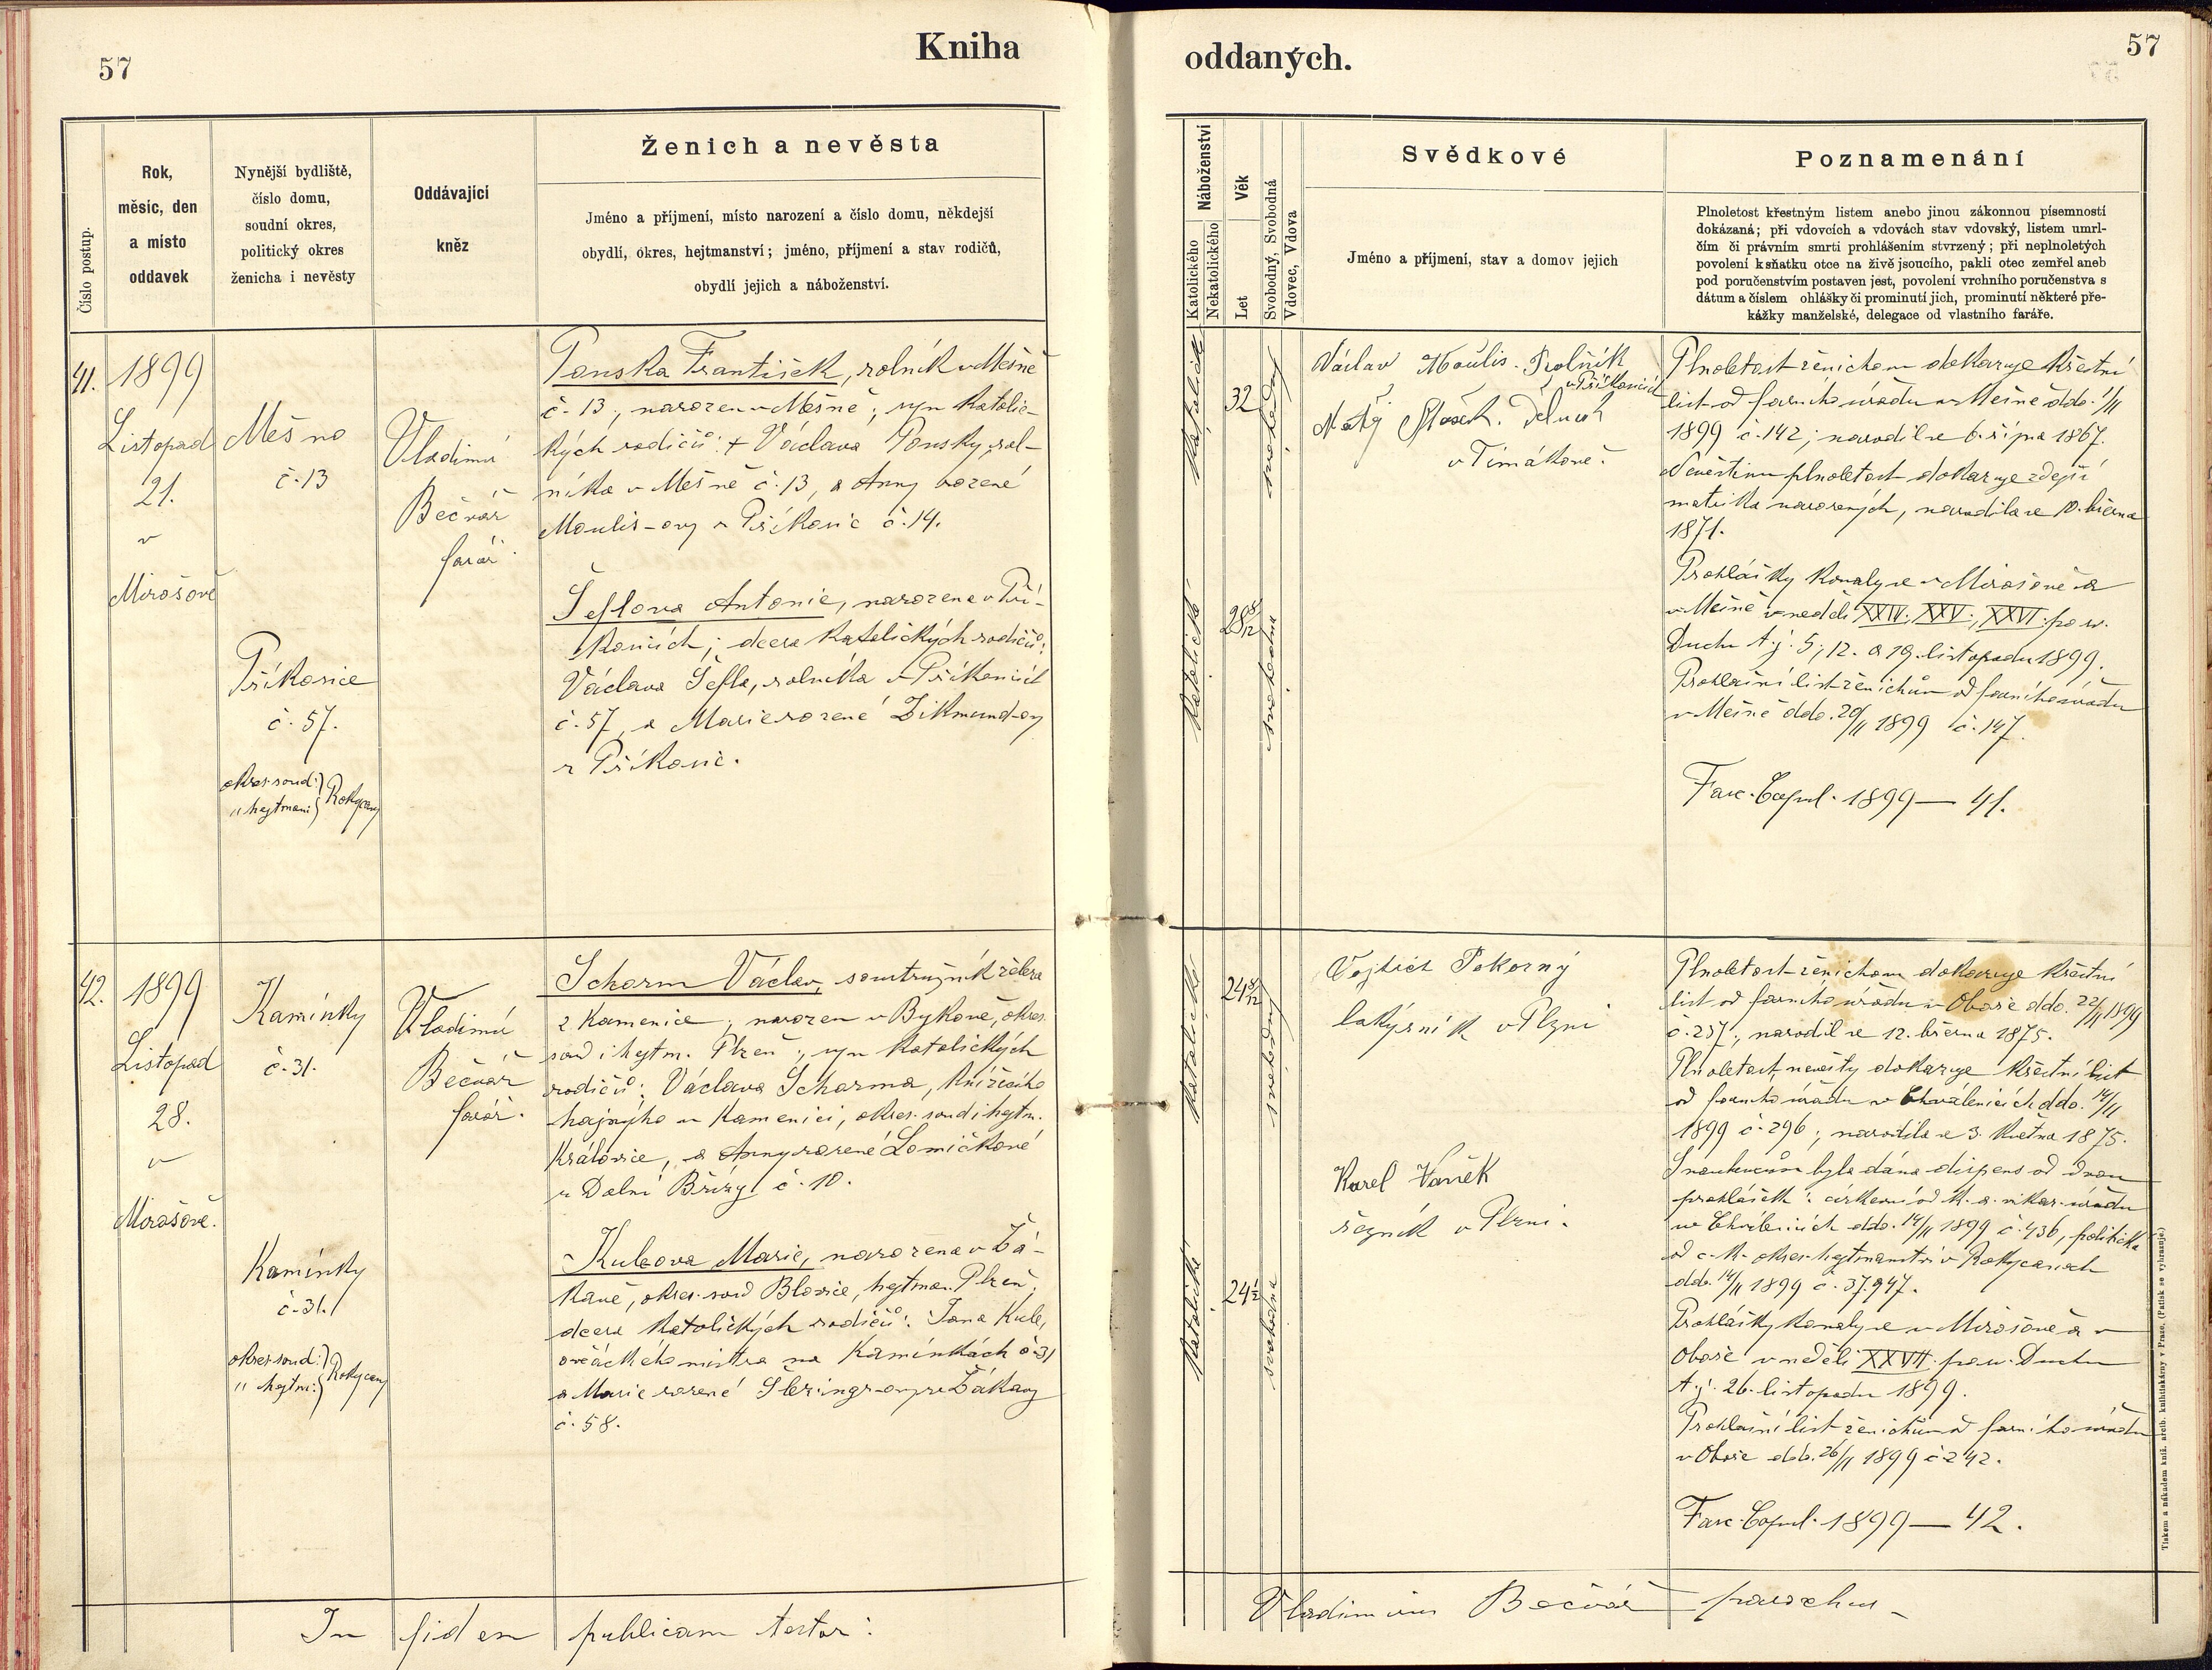 57
Kniha
oddaných.
57
Číslo postup.
Rok,
měsíc, den
a místo
oddavek
Nynější bydliště,
číslo domu,
soudní okres,
politický okres
ženicha i nevěsty
Oddávající
kněz
Ženich a nevěsta
Jméno a příjmení, místo narození a číslo domu, někdejší
obydlí, okres, hejtmanství; jméno, příjmení a stav rodičů,
obydlí jejich a náboženství.
Náboženství
Katolického
Nekatolického
Věk
Let
Svobodný, Svobodná
Vdovec, Vdova
Svědkové
Jméno a příjmení, stav a domov jejich
Poznamenání
Plnoletost křestným listem anebo jinou zákonnou písemností
dokázaná; při vdovcích a vdovách stav vdovský, listem umrl-
čím či právním smrti prohlášením stvrzený; při neplnoletých
povolení k sňatku otce na živě jsoucího, pakli otec zemřel aneb
pod poručenstvím postaven jest, povolení vrchního poručenstva s
dátum a číslem ohlášky či prominutí jich, prominutí některé pře-
kážky manželské, delegace od vlastního faráře.
41.
1899
Listopad
21.
v
Mirošově
Mešno
č. 13
Příkosice
č. 57.
okres. soud:
" hejtman:
Rokycany
Vladimír
Bečvář
farář.
Pouska František, rolník v Mešně
č. 13, narozen v Mešně, syn katolic-
kých rodičů: + Václava Pousky, rol-
níka v Mešně č. 13, a Anny rozené
Moulis-ovy z Příkosic č. 14.
Šeflova Antonie, narozena v Pří-
kosicích; dcera katolických rodičů:
Václava Šefla, rolníka v Příkosicích
č. 57, a Marie rozené Zikmund-ovy
z Příkosic.
katolické
32
svobodný
katolické
28 8/12
svobodná
Václav Moulis. Rolník
v Příkosicích
v Timákově.
Plnoletost ženichovu dokazuje křestní
list od farního úřadu v Mešně ddo. 1/11
1899 č. 142; narodil se 6. října 1867.
Nevěstinu plnoletost dokazuje zdejší
matrika narozených, narodila se 10. března
1871.
Prohlášky konaly se v Mirošově a
v Mešně v neděli XXIV., XXV., XXVI. po sv.
Duchu t. j. 5., 12. a 19. listopadu 1899.
Prohlašní list ženichův od farního úřadu
v Mešně ddo. 20/11 1899 č. 147.
Fasc. Copul. 1899 — 41.
42.
1899
Listopad
28.
v
Mirošově.
Kamínky
č. 31.
Kamínky
č. 31.
okres. soud:
" hejtm:
Rokycany
Vladimír
Bečvář
farář.
Scharm Václav, soustružník železa
z Kamenice, narozen v Bykově, okres.
soud i hejtm. Plzeň, syn katolických
rodičů: Václava Scharma, knížecího
hajného v Kamenici, okres. soud i hejtm.
Kralovice, a Anny rozené Lomičkové
z Dolní Břízy č. 10.
Kubova Marie, narozena v Žá-
kavě, okres. soud Blovice, hejtman. Plzeň,
dcera katolických rodičů: Jana Kuby,
ovčáckého mistra na Kamínkách č. 31
a Marie rozené
č. 58.
katolické
24 8/12
svobodný
katolické
24 1/2
svobodná
Vojtěch Pokorný
lakýrník v Plzni
Karel Vaněk
řezník v Plzni.
Plnoletost ženichovu dokazuje křestní
list od farního úřadu v Oboře ddo. 22/11 1899
č. 237; narodil se 12. března 1875.
Plnoletost nevěsty dokazuje křestní list
od farního úřadu v Chválenicích ddo. 14/11
1899 č. 296; narodila se 3. května 1875.
Snoubencům byla dána dispens od dvou
prohlášek: církevní od k. a. vikar. úřadu
ve Chválenicích ddo. 14/11 1899 č. 436, politická
od c. k. okres. hejtmanství v Rokycanech
ddo. 14/11 1899 č. 37.947.
Prohlášky konaly se v Mirošově a v
Oboře v neděli XXVII. po sv. Duchu
t. j. 26. listopadu 1899.
Prohlašní list ženichův od farního úřadu
v Oboře ddo. 26/11 1899 č. 242.
Fasc. Copul. 1899 — 42.
In fidem publicam testor:
Vladimirus Bečvář parochus
Tiskem a nákladem kníž. arcib. knihtiskárny v Praze. (Patisk se vyhrazuje.)